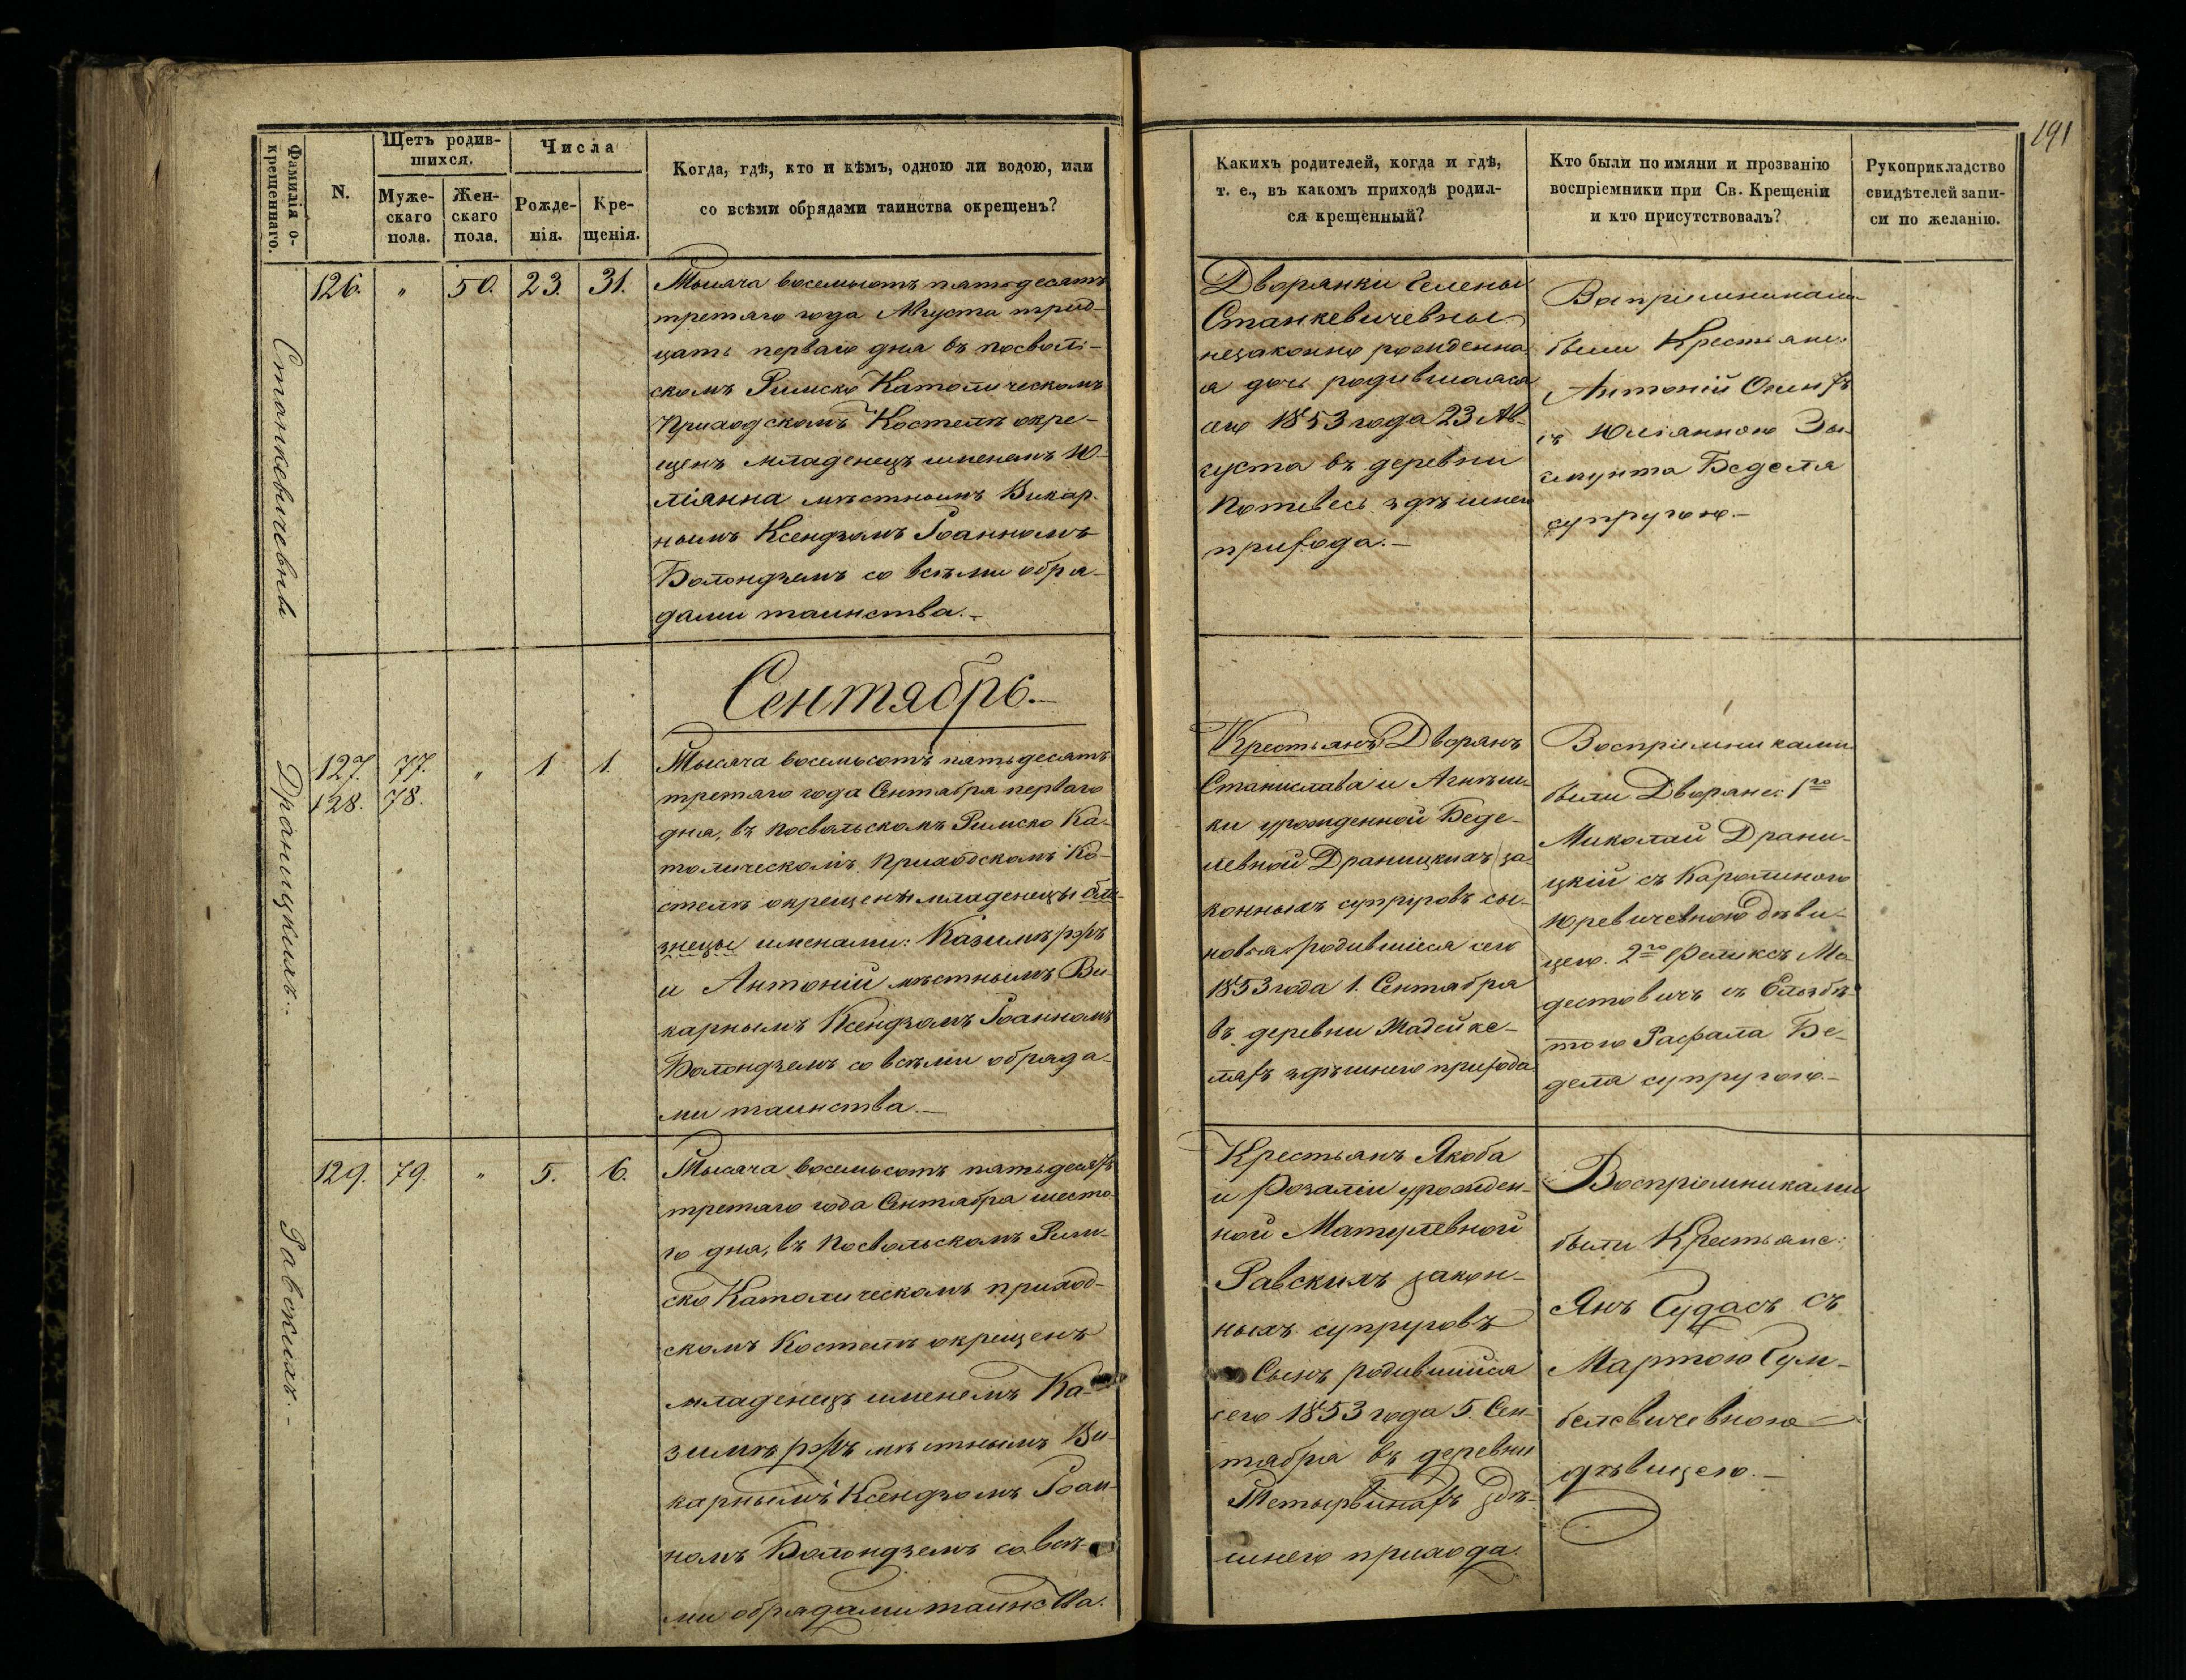 191
Фамилія о-
крещеннаго.
N.
Щетъ родив-
шихся.
Муже-
скаго
пола.
Жен-
скаго
пола.
Числа
Рожде-
нія.
Кре-
щенія.
Когда, гдѣ, кто и кѣмъ, одною ли водою, или
со всѣми обрядами таинства окрещенъ?
Каких​ъ родителей, когда и гдѣ,
т. е., въ какомъ приходѣ родил-
ся крещенный?
Кто были по имяни и прозванію
воспріемники при Св. Крещеніи
и кто присутствовалъ?
Рукоприкладство
свидѣтелей запи-
си по желанію.
Станкевичевны
126. " 50. 23. 31.
Тысяча восемьсотъ пятьдесятъ
третяго года Августа трид-
цать перваго дня въ Посволь-
скомъ Римско Католическомъ
Приходскомъ Костелѣ окре-
щенъ младенецъ именемъ Ю-
ліянна мѣстнымъ Викар-
нымъ Ксендзомъ Іоанномъ
Болондземъ со всѣми обря-
дами таинства.-
Дворянки Елены
Станкевичевны
незаконно рожденна
я дочь родившаяся
сего 1853 года 23 Ав-
густа въ деревни
Потевесь здѣшнего
прихода.-
Воспріемниками
были Крестьяне:
Антоній
съ Юліянною Зы-
гмунта Беделя
супругою.-
Сентябрь.-
Драницкихъ.
127. 77. " 1 1.
128. 78.
Тысяча восемьсотъ пятьдесятъ
третяго года Сентября перваго
дня, въ Посвольскомъ Римско Ка-
толическомъ Приходскомъ Ко-
стелѣ окрещены младенецы бли-
знецы именами: Казимѣръ
и Антоній мѣстнымъ Ви-
карнымъ Ксендзомъ Іоанномъ
Болондземъ со всѣми обряда-
ми таинства.-
Крестьянъ Дворянъ
Станислава и Агнѣш-
ки урожденной Беде-
левной Драницкихъ за-
конныхъ супруговъ сы-
новья родившіеся сего
1853 года 1. Сентября
въ деревни Мадейке-
ляхъ здѣшнего прихода
Воспріемниками
были Дворяне: 1го
Миколай Драни-
цкій съ Каролиною
Юревичевною дѣви-
цею. 2го Феликсъ Мо-
дестовичъ съ Ельзбѣ-
тою Рафала Бе-
деля супругою.-
Равскихъ.-
129. 79. " 5. 6.
Тысяча восемьсотъ пятьдесятъ
третяго года Сентября шесто-
го дня, въ Посвольскомъ Рим-
ско Католическомъ приход-
скомъ Костелѣ окрещенъ
младенецъ именемъ Ка-
зимѣръ мѣстнымъ Ви-
карнымъ Ксендзомъ Іоан-
номъ Болондземъ со всѣ-
ми обрядами таинства.
Крестьянъ Якоба
и Розаліи урожден-
ной Матулевной
Равскихъ закон-
ныхъ супруговъ
Сынъ родившійся
сего 1853 года 5. Сен-
тября въ деревни
Тетырвинахъ здѣ-
шнего прихода.
Воспріемниками
были Крестьяне:
Янъ Судасъ съ
Мартою Гум-
белевичевною
дѣвицею.-